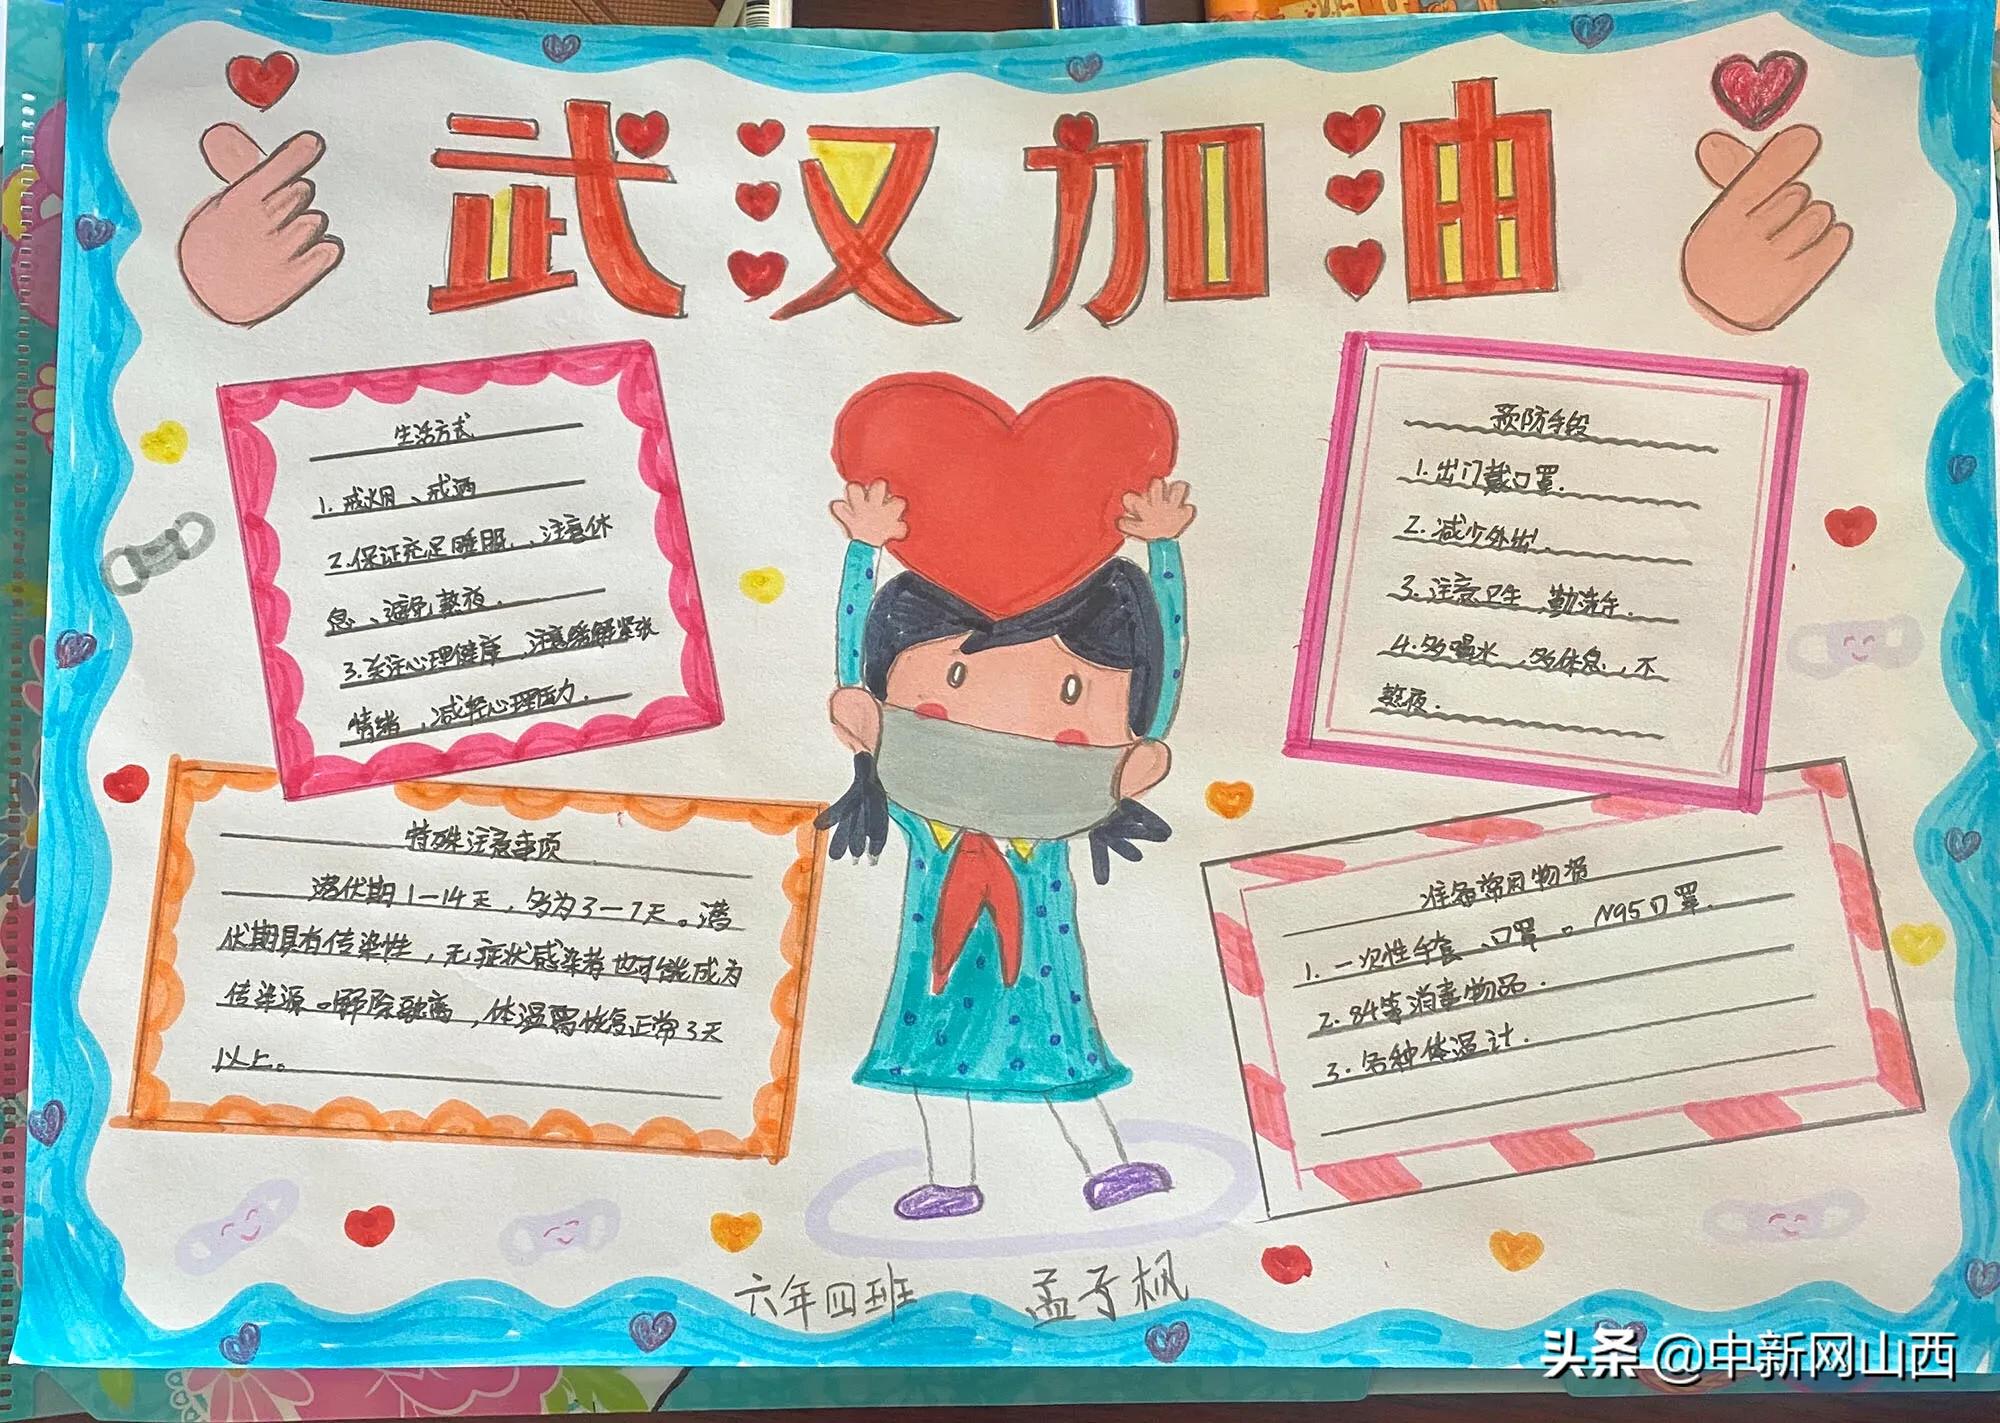 武汉加油
生活方式
1.戒烟、戒酒
2.保证充足睡眠、注意休
息、避免熬夜.
3.关注心理健康,注意缓解紧张
情绪,减轻心理压力.
预防手段
1.出门戴口罩.
2.减少外出.
3.注意卫生,勤洗手.
4.多喝水,多休息,不
熬夜.
特殊注意事项
潜伏期1—14天,多为3—7天。潜
伏期具有传染性,无症状感染者也可能成为
传染源。解除隔离,体温需恢复正常3天
以上。
准备常用物资
1.一次性手套、口罩。N95口罩.
2.84等消毒物品.
3.各种体温计.
六年四班 孟子枫
头条 @中新网山西